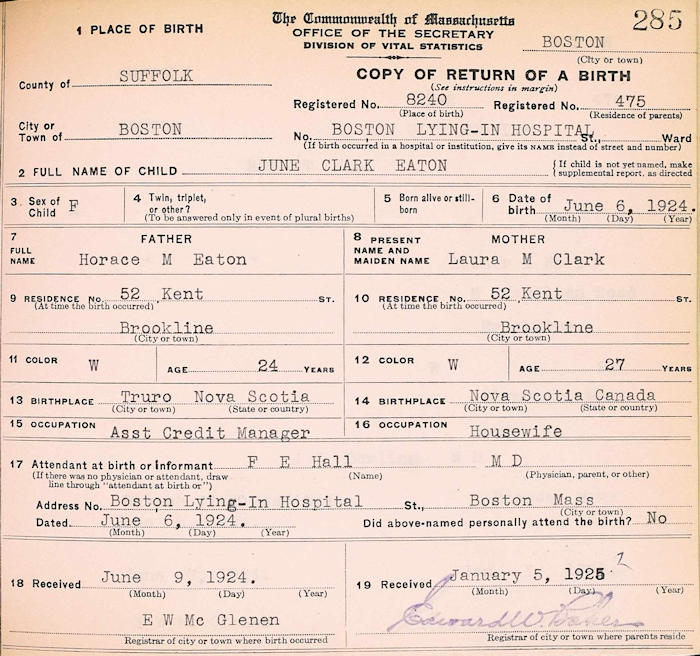 285
The Commonwealth of Massachusetts
OFFICE OF THE SECRETARY
DIVISION OF VITAL STATISTICS
1 PLACE OF BIRTH
BOSTON
(City or town)
County of SUFFOLK
COPY OF RETURN OF A BIRTH
(See instructions in margin)
Registered No. 8240 Registered No. 475
(Place of birth) (Residence of parents)
City or Town of BOSTON
No. BOSTON LYING-IN HOSPITAL St., Ward
(If birth occurred in a hospital or institution, give its NAME instead of street and number)
2 FULL NAME OF CHILD JUNE CLARK EATON
{If child is not yet named, make
supplemental report, as directed
3 Sex of Child F
4 Twin, triplet, or other?
(To be answered only in event of plural births)
5 Born alive or still-born
6 Date of birth June 6, 1924.
(Month) (Day) (Year)
7 FULL NAME FATHER
Horace M Eaton
8 PRESENT NAME AND MAIDEN NAME MOTHER
Laura M Clark
9 RESIDENCE No. 52 Kent ST.
(At time the birth occurred)
Brookline
(City or town)
10 RESIDENCE No. 52 Kent ST.
(At time the birth occurred)
Brookline
(City or town)
11 COLOR W AGE 24 YEARS
12 COLOR W AGE 27 YEARS
13 BIRTHPLACE Truro Nova Scotia
(City or town) (State or country)
14 BIRTHPLACE Nova Scotia Canada
(City or town) (State or country)
15 OCCUPATION Asst Credit Manager
16 OCCUPATION Housewife
17 Attendant at birth or informant F E Hall M D
(If there was no physician or attendant, draw line through "attendant at birth or") (Name) (Physician, parent, or other)
Address No. Boston Lying-In Hospital St., Boston Mass
(City or town)
Dated June 6, 1924.
(Month) (Day) (Year)
Did above-named personally attend the birth? No
18 Received June 9, 1924.
(Month) (Day) (Year)
E W Mc Glenen
Registrar of city or town where birth occurred
19 Received January 5, 1925
(Month) (Day) (Year)
Edward W. Baker
Registrar of city or town where parents reside